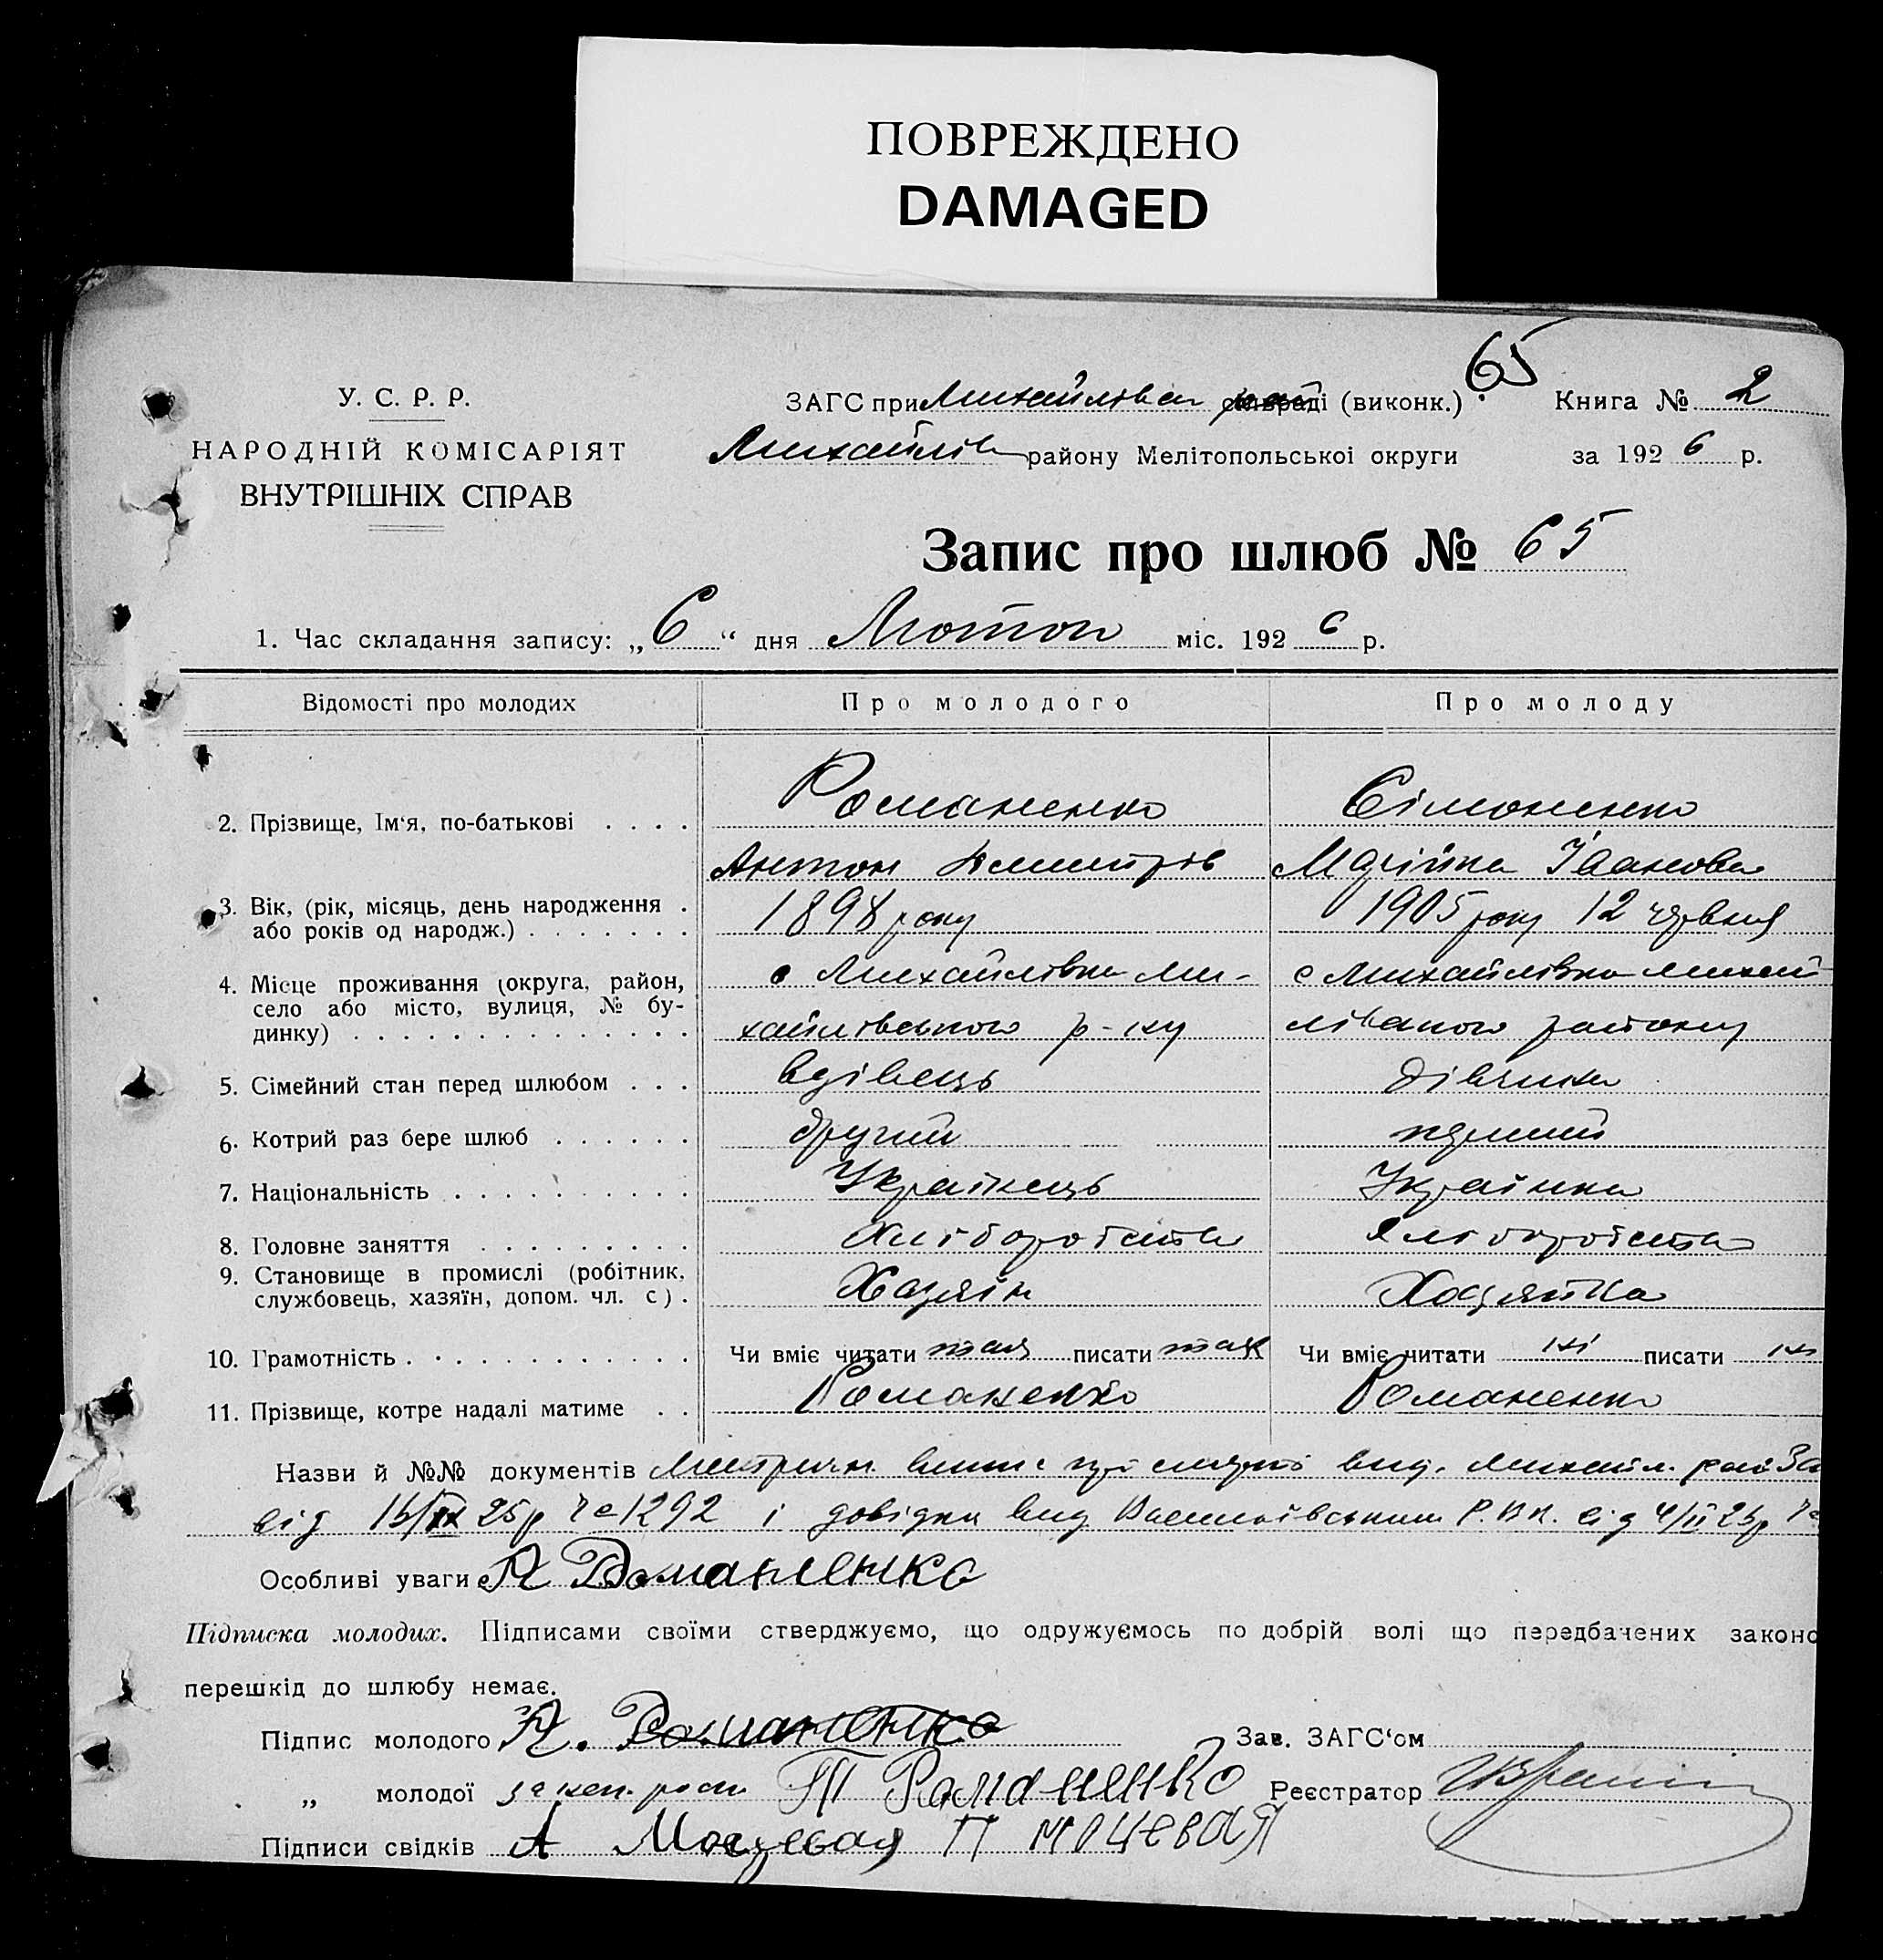 ПОВРЕЖДЕНО
DAMAGED
65
У. С. Р. Р.
НАРОДНІЙ КОМІСАРІЯТ
ВНУТРІШНІХ СПРАВ
ЗАГС при Михайлівск сільраді (виконк.) Книга № 2
Михайлів району Мелітопольської округи за 1926 р.
Запис про шлюб № 65
1. Час складання запису: „6“ дня Лютого міс. 1926 р.
Відомості про молодих Про молодого Про молоду
2. Прізвище, Ім'я, по-батькові . . . . Романенко Сімоненко
Антон Дмитрів Марійка Іванова
3. Вік, (рік, місяць, день народження . 1898 року 1905 року 12 червня
або років од народж.) . . . . . . .
4. Місце проживання (округа, район, с Михайлівка Ми- с Михайлівка Михай
село або місто, вулиця, № бу-
динку) . . . . . . . . . . . . . . хайлівського р-ну району
5. Сімейний стан перед шлюбом . . . вдівець дівчина
6. Котрий раз бере шлюб . . . . . . другий перший
7. Національність . . . . . . . . . . Українець Українка
8. Головне заняття . . . . . . . . . Хлiборобство Хлiборобство
9. Становище в промислі (робітник, Хазяїн Хазяйка
службовець, хазяїн, допом. чл. с) .
10. Грамотність . . . . . . . . . . . . Чи вміє читати так писати так Чи вміє читати ні писати ні
11. Прізвище, котре надалі матиме . . Романенко Романенко
Назви й №№ документів Метричн. випис про вид. Михайл. рай
від 25р № 1292 і довідка вид Р.В.К. від 4/II 26р №
Особливі уваги А Романенко
Підписка молодих. Підписами своїми стверджуємо, що одружуємось по добрій волі що передбачених законо
перешкід до шлюбу немає.
Підпис молодого А. Романенко Зав. ЗАГС'ом
„ молодої за неп. росп. Романенко Реєстратор
Підписи свідків А Моцевая П Моцевая